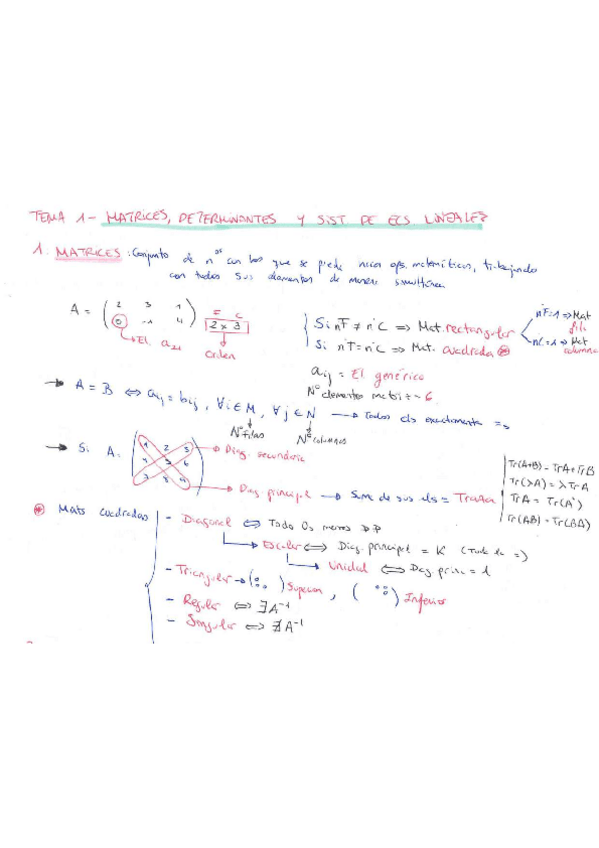 TEMA 1- MATRICES, DETERMINANTES Y SIST DE ECS LINEALES
1. MATRICES: Conjunto de nos con los que se puede hacer ops. matemáticas, trabajando
con todos sus elementos de manera simultánea
A = ( 2 3 1
0 -1 4 ) F C
2 x 3
El a21
Orden
Si nºF ≠ nºC ⇒ Mat. rectangular
nºF=1 ⇒ Mat fila
nºC=1 ⇒ Mat columna
Si nºF = nºC ⇒ Mat. cuadrada
aij = El genérico
Nº elementos matriz = 6
→ A = B ⇔ aij = bij, ∀i∈M, ∀j∈N → Todos els exactamente =s
Nº filas Nº columnas
→ Si A = ( 1 2 3
→ Diag. secundaria
→ Diag principal → Suma de sus els = Traza
Tr(A+B) = TrA + TrB
Tr(λA) = λTrA
TrA = Tr(Aᵗ)
Tr(AB) = Tr(BA)
Mats cuadradas
- Diagonal ⇔ Todo 0s menos DP
Escalar ⇔ Diag. principal = K (Toda la =)
Unidad ⇔ Diag princ = 1
- Triangular → ( ) Superior, ( ) Inferior
- Regular ⇔ ∃A⁻¹
- Singular ⇔ ∄A⁻¹